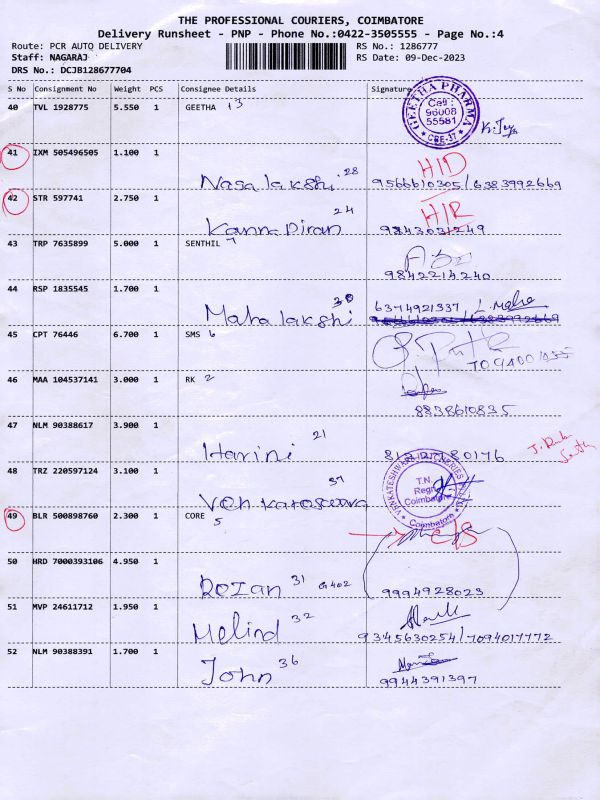 THE PROFESSIONAL COURIERS, COIMBATORE
Delivery Runsheet - PNP - Phone No.:0422-3505555 - Page No.:4
Route: PCR AUTO DELIVERY RS No.: 1286777
Staff: NAGARAJ RS Date: 09-Dec-2023
DRS No.: DCJB128677704
S No Consignment No Weight PCS Consignee Details Signature
40 TVL 1928775 5.550 1 GEETHA 13
GEETHA PHARMA Cell : 96008 55581 CBE-37
41 IXM 505496505 1.100 1 HID
28 9566610305/6383992669
42 STR 597741 2.750 1 24 H/R
Kanna Piran 9843031249
43 TRP 7635899 5.000 1 SENTHIL 7
9842214240
44 RSP 1835545 1.700 1 30
Maha lakshi 6374921337/ L. Maha
45 CPT 76446 6.700 1 SMS 6
46 MAA 104537141 3.000 1 RK 2
8838610835
47 NLM 90388617 3.900 1 21
Harini
48 TRZ 220597124 3.100 1 37
T.N. Regn Coimbatore
49 BLR 500898760 2.300 1 CORE 5 c/s
50 HRD 7000393106 4.950 1
Rozan 31 G402 9994928023
51 MVP 24611712 1.950 1
Melind 32 9345630254/7094017772
52 NLM 90388391 1.700 1
John 36 9944391397